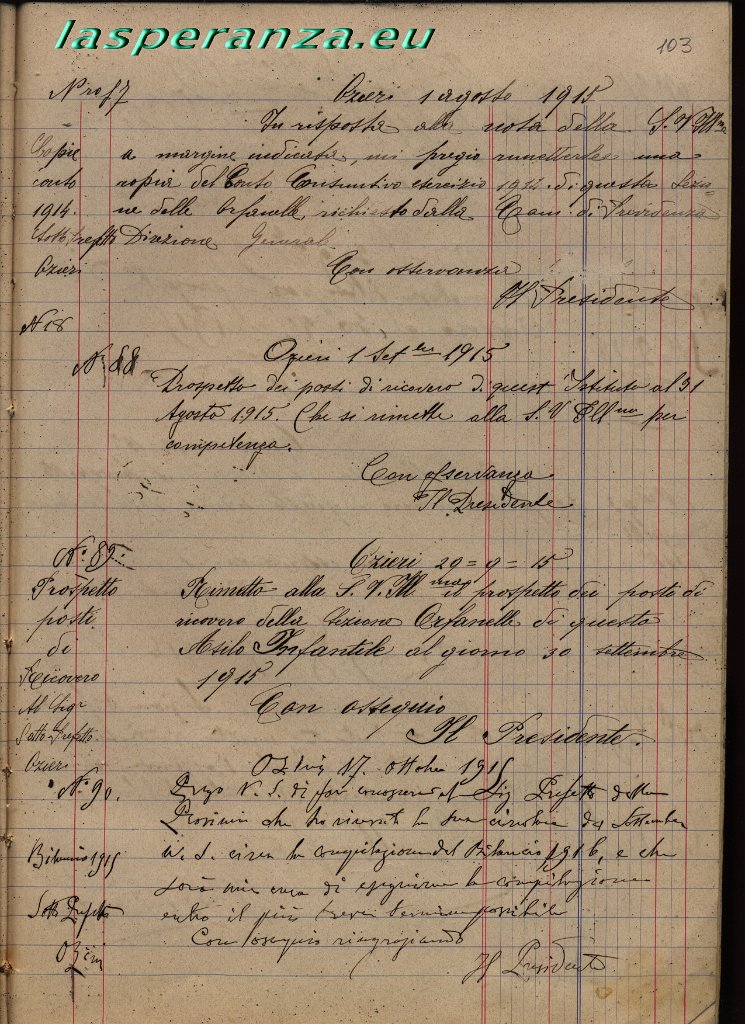 lasperanza.eu
103
Ozieri 1 agosto 1915
In risposta alla nota della S. V Illma
Copie
conto
1914.
Sotto Prefetto
Ozieri
a margine indicata, mi pregio rimetterle una
copia del Conto Consuntivo esercizio 1914 di questa Sezio=
ne delle Orfanelle richiesto dalla
Direzione General
Con osservanza
Il Presidente
N 18
N. 88
Ozieri 1 Setbre 1915
Prospetto dei posti di ricovero di quest Istituto al 31
Agosto 1915. Che si rimette alla S. V Illma per
competenza.
Con osservanza
Il Presidente
N. 89.
Ozieri 29=9=15
Prospetto
posti
di
Ricovero
Al Sigr
Sotto Prefetto
Ozieri
Rimetto alla S. V. Ill ma il prospetto dei posti di
ricovero della Sezione Orfanelle di questo
Asilo Infantile al giorno 30 settembre
1915
Con ossequio
Il Presidente.
N. 90.
Ozieri 17. ottobre 1915
Bilancio 1915
Sotto Prefetto
Ozieri
Prego V. S. di far conoscere al Sig Prefetto della
Provincia che ho ricevuto la sua circolare del Settembre
u. s. circa la compilazione del Bilancio 1916, e che
sarà mia cura di eseguirne la compilazione
entro il più breve termine possibile
Con ossequio ringraziando
Il Presidente